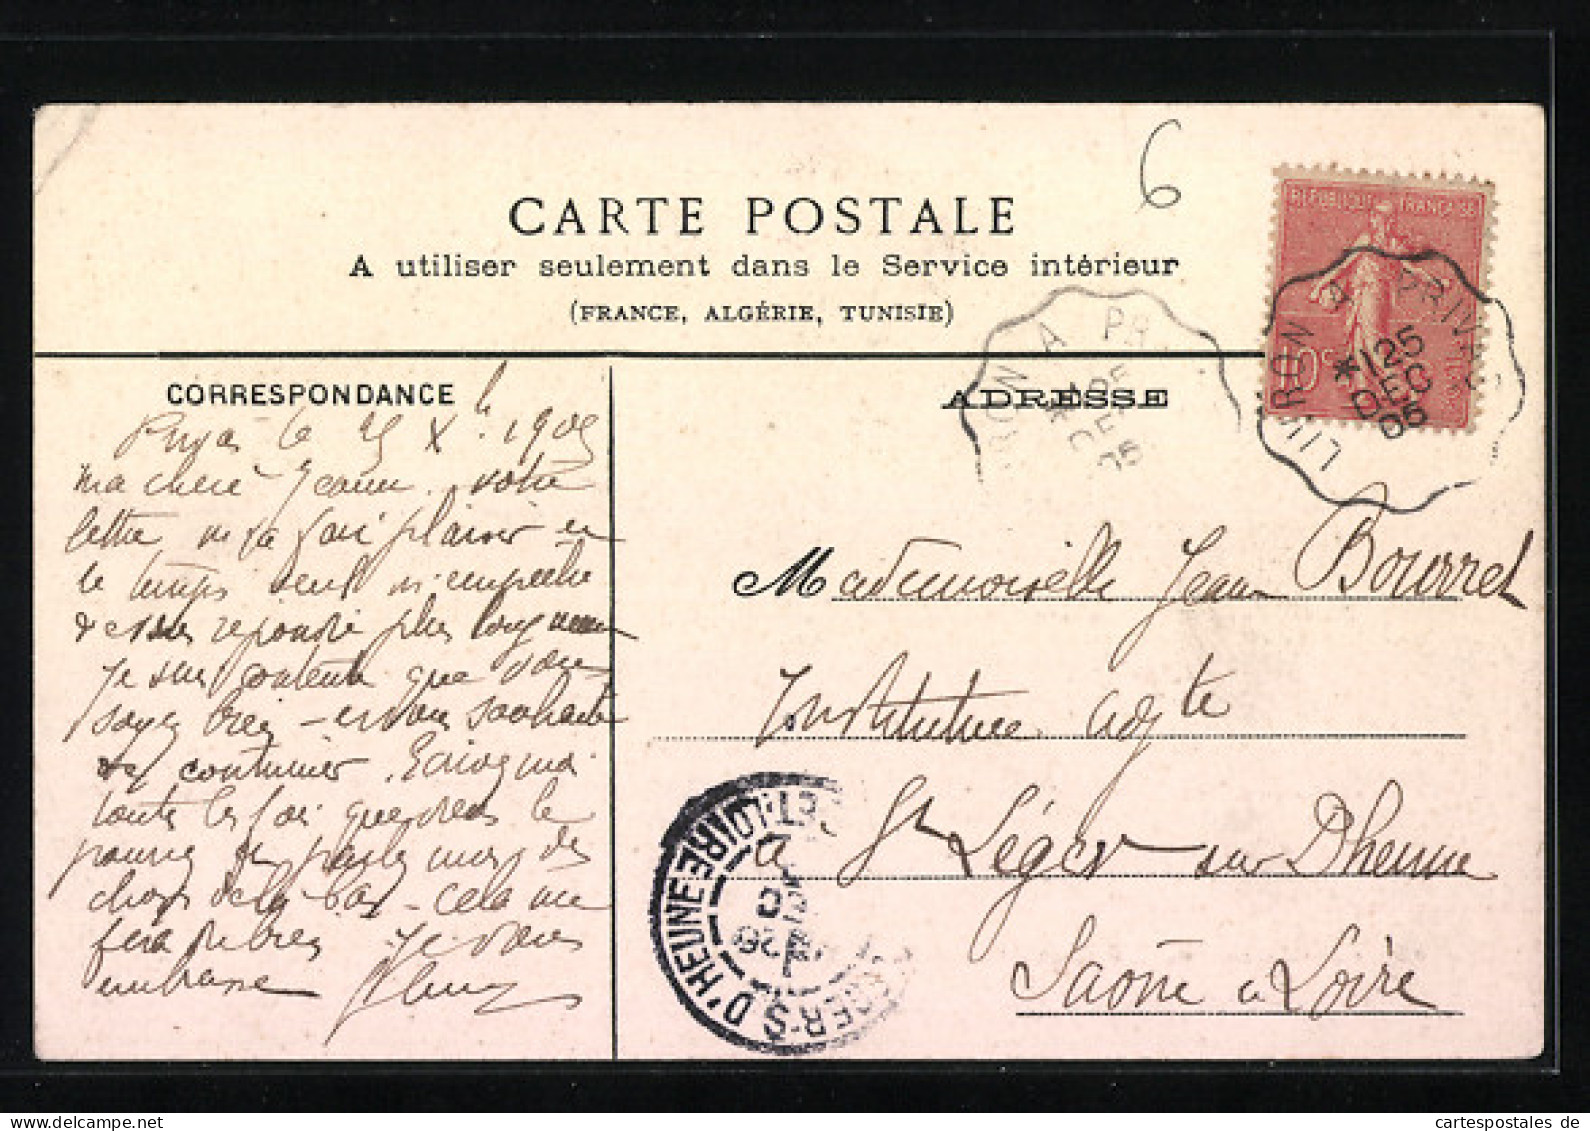 6
CARTE POSTALE
A utiliser seulement dans le Service intérieur
(FRANCE, ALGÉRIE, TUNISIE)
REPUBLIQUE FRANÇAISE
10c
LIVRON A PRIVAS
*125
DEC
05
RON A PR
DE
05
CORRESPONDANCE
le 25 Xbre 1905
ma chere Jeanne votre
lettre m'a fait plaisir
le temps seul m'empeche
de vous repondre plus longuement
Je suis contente que vous
soyez bien et vous souhaite
de continuer. Ecrivez moi
toutes les fois que vous le
pourrez
choses de la bas - cela me
fera du bien Je vous
embrasse
ADRESSE
Mademoiselle Jeanne Bourret
Institutrice adjte
a St Léger sur Dheune
Saône et Loire
LEGER-S-D'HEUNE SNE-ET-LOIRE
26
cartespostales de